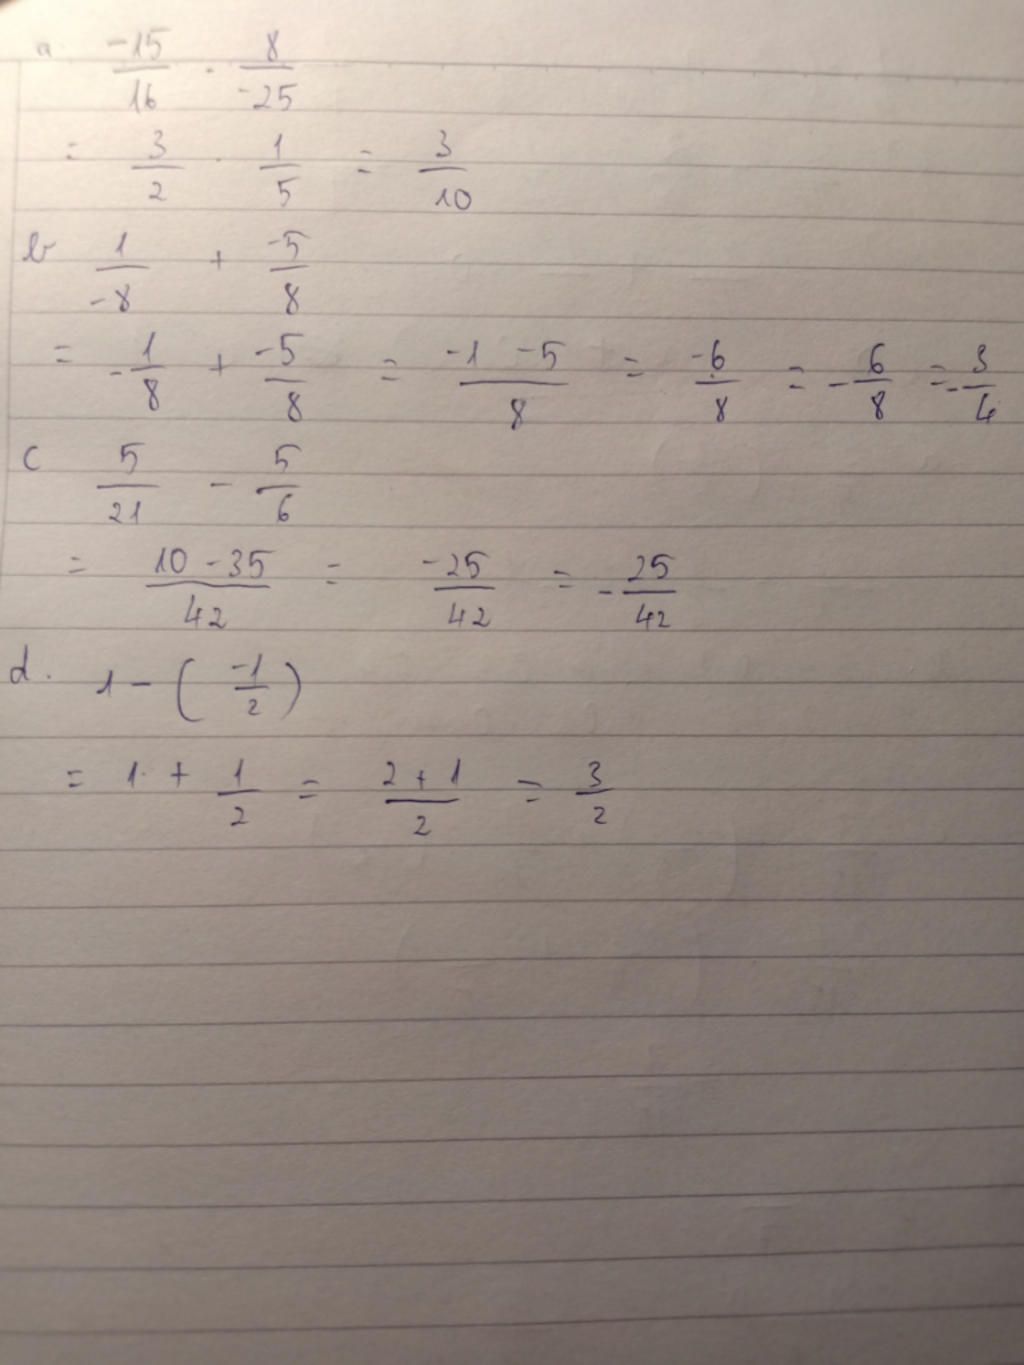 a. -15/16 · 8/-25
= 3/2 · 1/5 = 3/10
b 1/-8 + -5/8
= -1/8 + -5/8 = -1 -5/8 = -6/8 = -6/8 = -3/4
c 5/21 - 5/6
= 10 - 35/42 = -25/42 = -25/42
d. 1 - (-1/2)
= 1 + 1/2 = 2 + 1/2 = 3/2